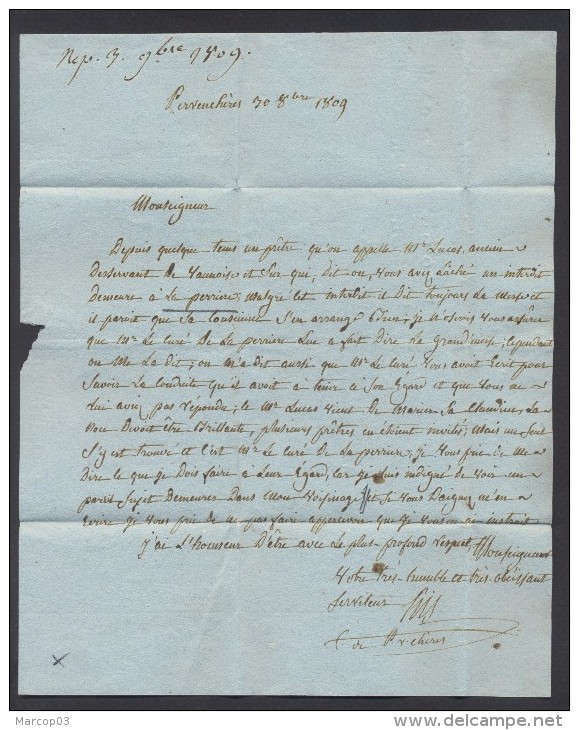 Rep. 3. 9bre 1809.
Pervenchères 30 8bre 1809
Monseigneur
Depuis quelque tems un prêtre qu'on appelle Mr Lucas, ancien
desservant de et sur qui, dit on, vous avez lâché un interdit
demeure à La perriere; malgré cet interdit il dit toujours La Messe et
il paroit que sa Conscience s'en arrange bien; je n'oserois vous assurer
que Mr Le curé De La perriere Lui a fait Dire La grand messe; cependant
on me L'a dit; on m'a dit aussi que Mr Le curé vous avoit écrit pour
savoir La Conduite qu'il avoit a tenir a son Egard et que vous ne
Lui aviez pas répondu; le Mr Lucas vient De Marier sa Claudine, La
noce Devoit être Brillante, plusieurs prêtres en étoient invités; Mais un seul
s'y est trouvé et c'est Mr Le curé de La perriere; je vous prie de me
Dire ce que je Dois faire à Leur Egard, car je suis indigné de voir un
pareil sujet Demeurer Dans mon voisinage et si vous Daignez m'en
écrire je vous prie de ne pas faire appercevoir que je vous en ai instruit
j'ai L'honneur D'être avec Le plus profond respect, Monseigneur
Votre très humble et très obéissant
serviteur
C de Pervchères
x
Marcop03 www.delcampe.net